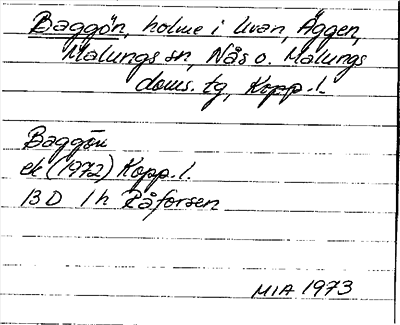 Baggön, holme i Uvan, Äggen,
Malungs sn, Nås o. Malungs
doms. tg, Kopp. l.
Baggön
ek (1972) Kopp. l.
13D 1h Råforsen
MIA 1973